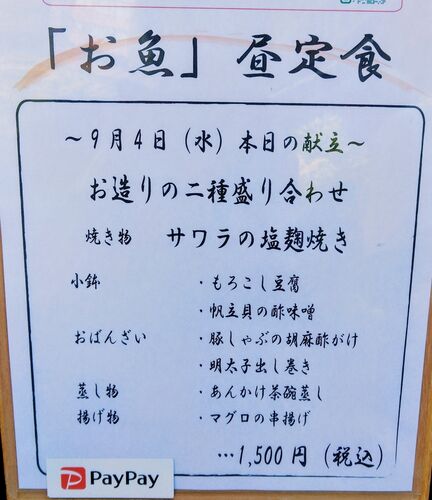 「お魚」昼定食
～9月4日（水）本日の献立～
お造りの二種盛り合わせ
焼き物 サワラの塩麹焼き
小鉢 ・もろこし豆腐
・帆立貝の酢味噌
おばんざい ・豚しゃぶの胡麻酢がけ
・明太子出し巻き
蒸し物 ・あんかけ茶碗蒸し
揚げ物 ・マグロの串揚げ
…1,500円（税込）
PayPay